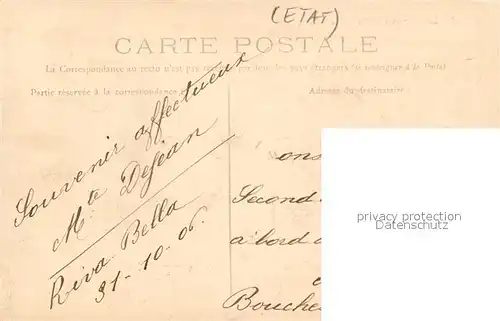 (ETAT)
CARTE POSTALE
La Correspondance au recto n'est pas par tous les pays étrangers (se renseigner à la Poste)
Partie réservée à la correspondance
Adresse du destinataire
Souvenir affectueux
Mte Dejean
Riva Bella
31-10-06.
ons
Second
a bord
Bouche
privacy protection
AnsichtskartenVersand.com